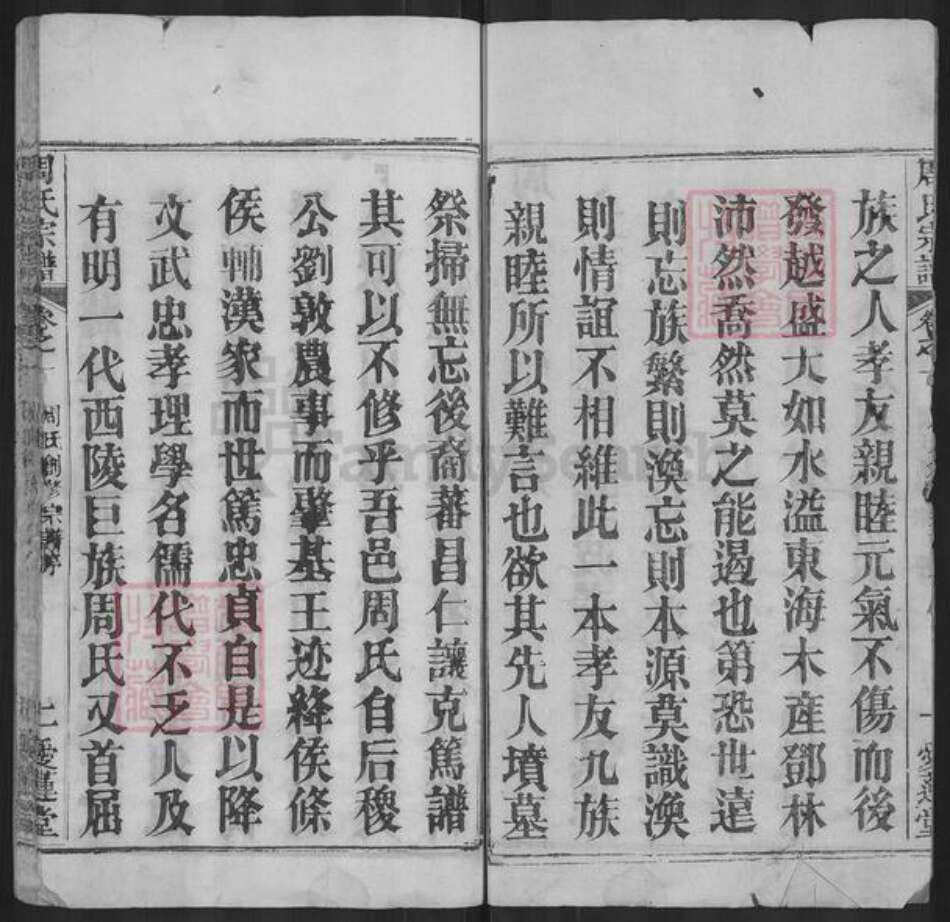 族之人孝友親睦元氣不傷而後
發越盛大如水溢東海木産鄧林
沛然喬然莫之能遏也第恐世遠
則忘族繁則渙忘則本源莫識渙
則情誼不相維此一本孝友九族
親睦所以難言也欲其先人墳墓
祭掃無忘後裔蕃昌仁讓克篤譜
其可以不修乎吾邑周氏自后稷
公劉敦農事而肇基王迹絳侯條
侯輔漢家而世篤忠貞自是以降
文武忠孝理學名儒代不乏人及
有明一代西陵巨族周氏又首屈
周氏宗譜
卷之一
周氏創修宗譜序
愛蓮堂
FamilySearch